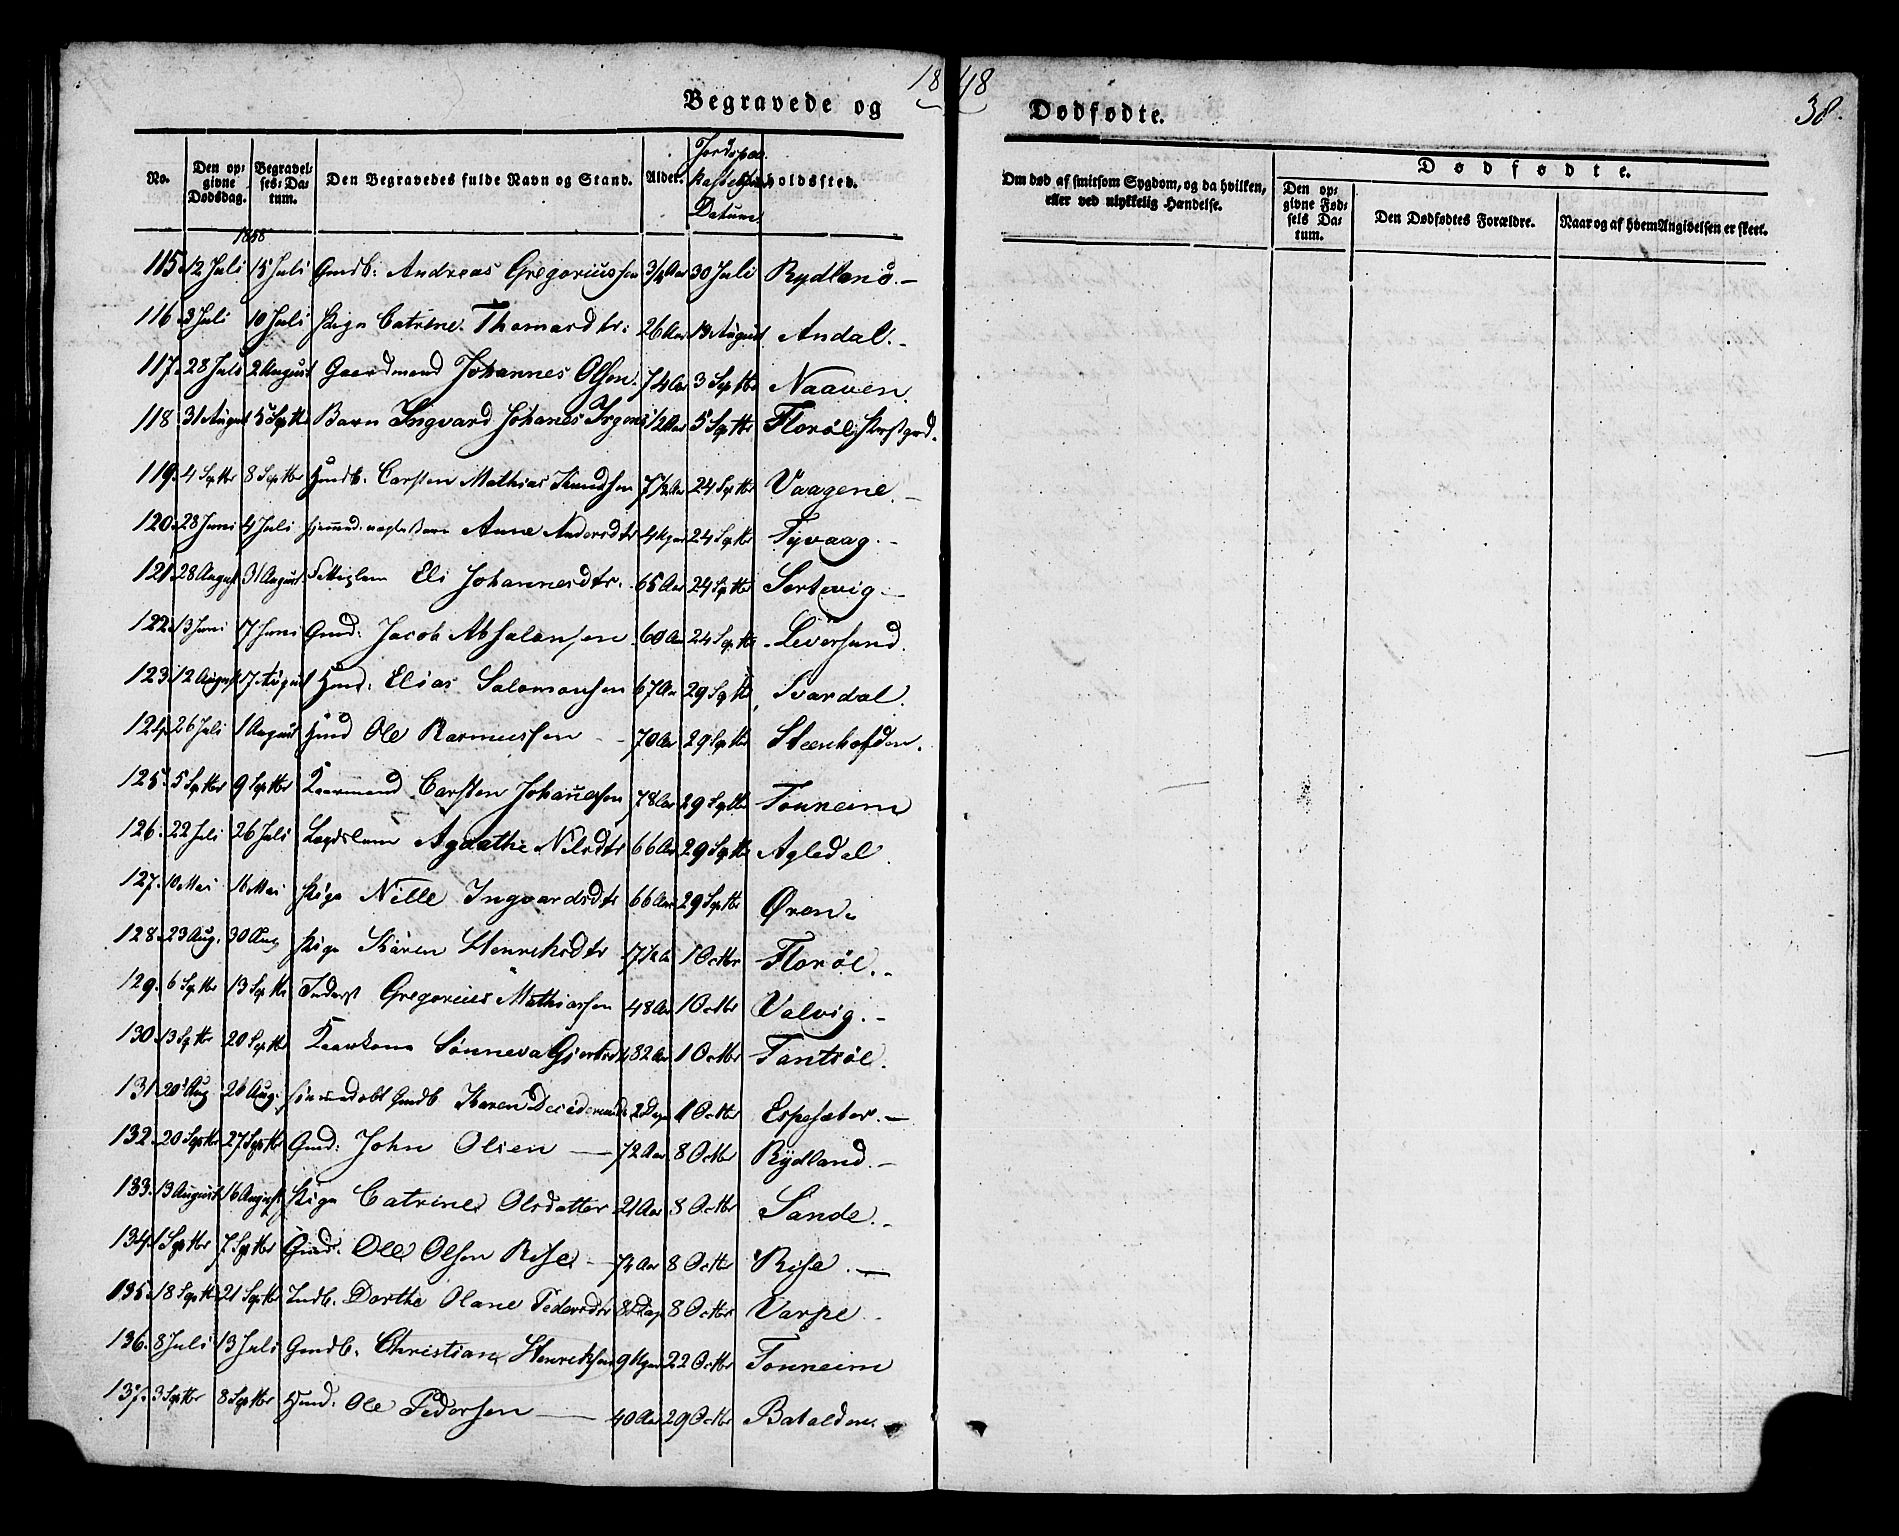 18 48
Begravede og Dødfødte.
38.
No. Den opgivne Dødsdag. Begravelses-Datum. Den Begravedes fulde Navn og Stand. Alder. Jordspaa Datum Opholdssted.
Om død af smitsom Sygdom, og da hvilken, eller ved ulykkelig Hændelse. Dødfødte. Den opgivne Fødsels Datum. Den Dødfødtes Forældre. Naar og af hvem Angivelsen er skeet.
1848
115. 12 Juli 15 Juli Gmdb: Andreas Gregoriussen 3/4 Aar 30 Juli Rydland.-
116. 3 Juli 10 Juli Pige Catrine Thomasdtr: 26 Aar 13 August Andal.-
117. 28 Juli 2 August Gaardmand Johannes Olsen. 74 Aar 3 Septbr Naaven.
118. 31 August 5 Septbr Barn Ingvard Johanes Irgens 1/2 Aar 5 Septbr Florøe
119. 4 Septbr 8 Septbr Hmdb. Carsten Mathias Knudsen 7 1/2 Aar 24 Septbr Vaagene.-
120. 28 Juni 4 Juli Anne Andersdtr 4 Uger 24 Septbr Tyvaag.-
121. 28 August 31 August Eli Johannesdtr. 65 Aar 24 Septbr Sortevig-
122. 13 Juni 17 Juni Gmd: Jacob Absalonsen 60 Aar 24 Septbr Leversund.
123. 12 August 17 August Hmd: Elias Salomonsen 67 Aar 29 Septbr Svardal.
124. 26 Juli 1 August Hmd Ole Rasmussen 70 Aar 29 Septbr Steenhofden.
125. 5 Septbr 9 Septbr Kaarmand Carsten Johannessen 78 Aar 29 Septbr Tonheim
126. 22 Juli 26 Juli Lægdslem Agaathe Nilsdtr 66 Aar 29 Septbr Agledal.
127. 10 Mai 16 Mai Pige Nille Ingvardsdtr 66 Aar 29 Septbr Øren.
128. 23 Aug. 30 Aug Pige Karen Henrichsdtr 1 Octbr Florøe.-
129. 6 Septbr 13 Septbr Inderst Gregorius Mathiassen 48 Aar 1 Octbr Valvig.-
130. 13 Septbr 20 Septbr Kaarkone Sønneva 82 Aar 1 Octbr Tantsøe.
131. 20 Aug 26 Aug. Gmdb Karen 2 Dage 1 Octbr Espesæter.-
132. 20 Septbr 27 Septbr Gmd: John Olsen - 72 Aar 8 Octbr Rydland.-
133. 13 August 16 August Pige Catrine Olsdatter 21 Aar 8 Octbr Sande.-
134. 1 Septbr 7 Septbr Gmd. Ole Olsen Rise - 74 Aar 8 Octbr Rise.-
135. 18 Septbr 21 Septbr Indb. Dorthe Olane Pedersdtr 8 Dage 8 Octbr Varpe.-
136. 8 Juli 13 Juli Gmdb. Christian Henriksen 9 Uger 22 Octbr Tonheim
137. 3 Septbr 8 Septbr Hmd. Ole Pedersen - 40 Aar 29 Octbr Batalden.